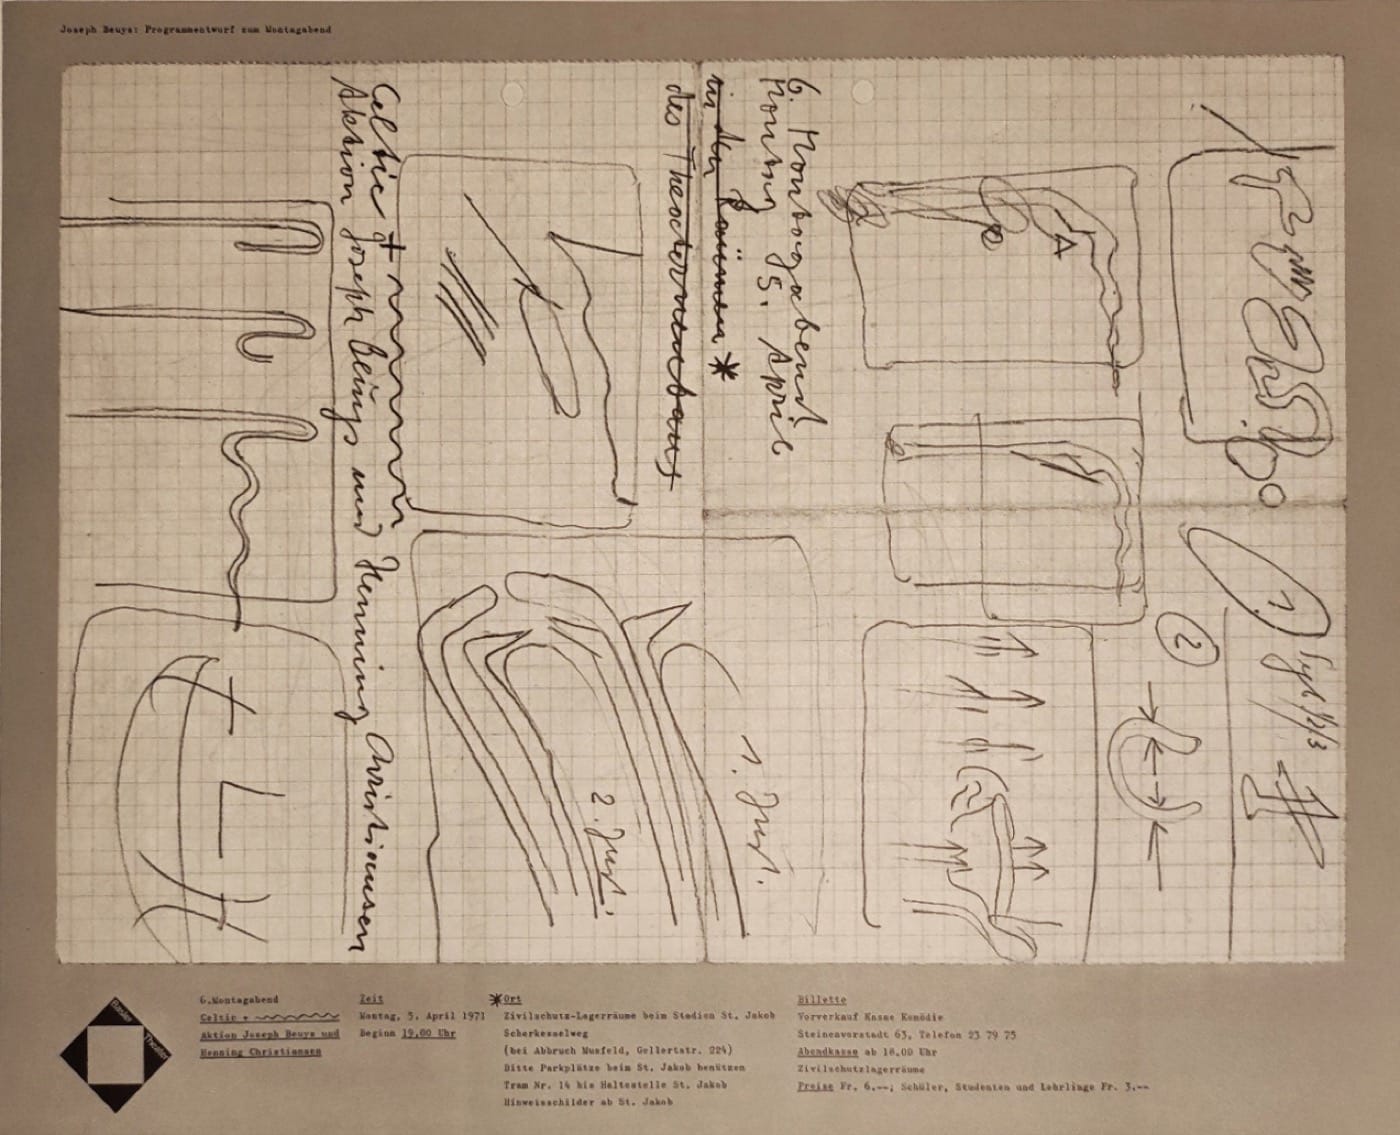 Joseph Beuys: Programmentwurf zum Montagabend
6. Montagabend
Montag 5. April
in den Räumen *
des Theaterneubaus
Celtic +
Aktion Joseph Beuys und Henning Christiansen
A
1
2
1/2/3
1.
2.
6.Montagabend
Celtic +
Aktion Joseph Beuys und
Henning Christiansen
Zeit
Montag, 5. April 1971
Beginn 19.00 Uhr
*Ort
Zivilschutz-Lagerräume beim Stadion St. Jakob
Scherkesselweg
(bei Abbruch Musfeld, Gellertstr. 224)
Bitte Parkplätze beim St. Jakob benützen
Tram Nr. 14 bis Haltestelle St. Jakob
Hinweisschilder ab St. Jakob
Billette
Vorverkauf Kasse Komödie
Steinenvorstadt 63, Telefon 23 79 75
Abendkasse ab 18.00 Uhr
Zivilschutzlagerräume
Preise Fr. 6.--; Schüler, Studenten und Lehrlinge Fr. 3.--
Basler
Theater